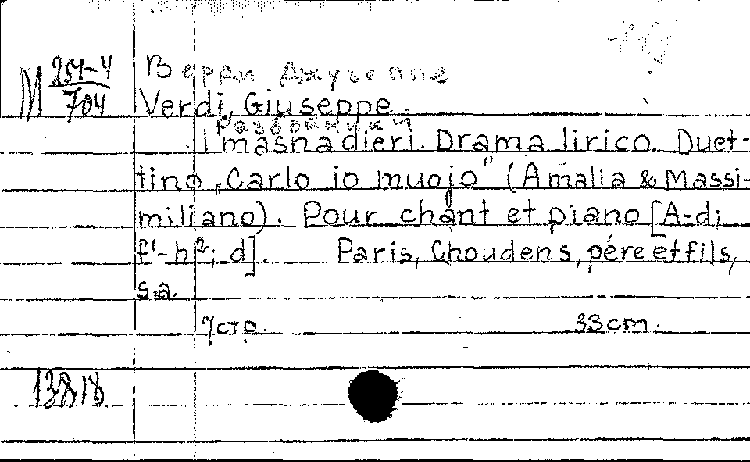 M 251-4/704
Верди Джузеппе
Verdi, Giuseppe.
Разбойники
I masnadieri. Drama lirico. Duet-
tino „Carlo io muojo" (Amalia & Massi-
miliano). Pour chant et piano [A-d;
f¹-h²; d]. Paris, Choudens, père et fils,
s.a.
7 стр. 33 cm.
13818